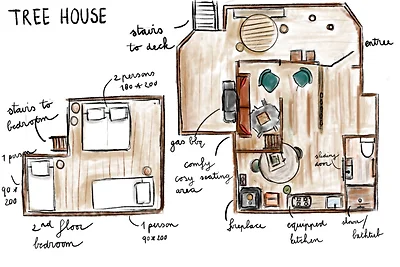 TREE HOUSE
stairs
to deck
entree
2 persons
180 x 200
stairs to
bedroom
1 person
90 x
200
2nd floor
bedroom
1 person
90 x 200
gas bbq
comfy
cosy seating
area
fireplace
equipped
kitchen
sliding
door
bathtub